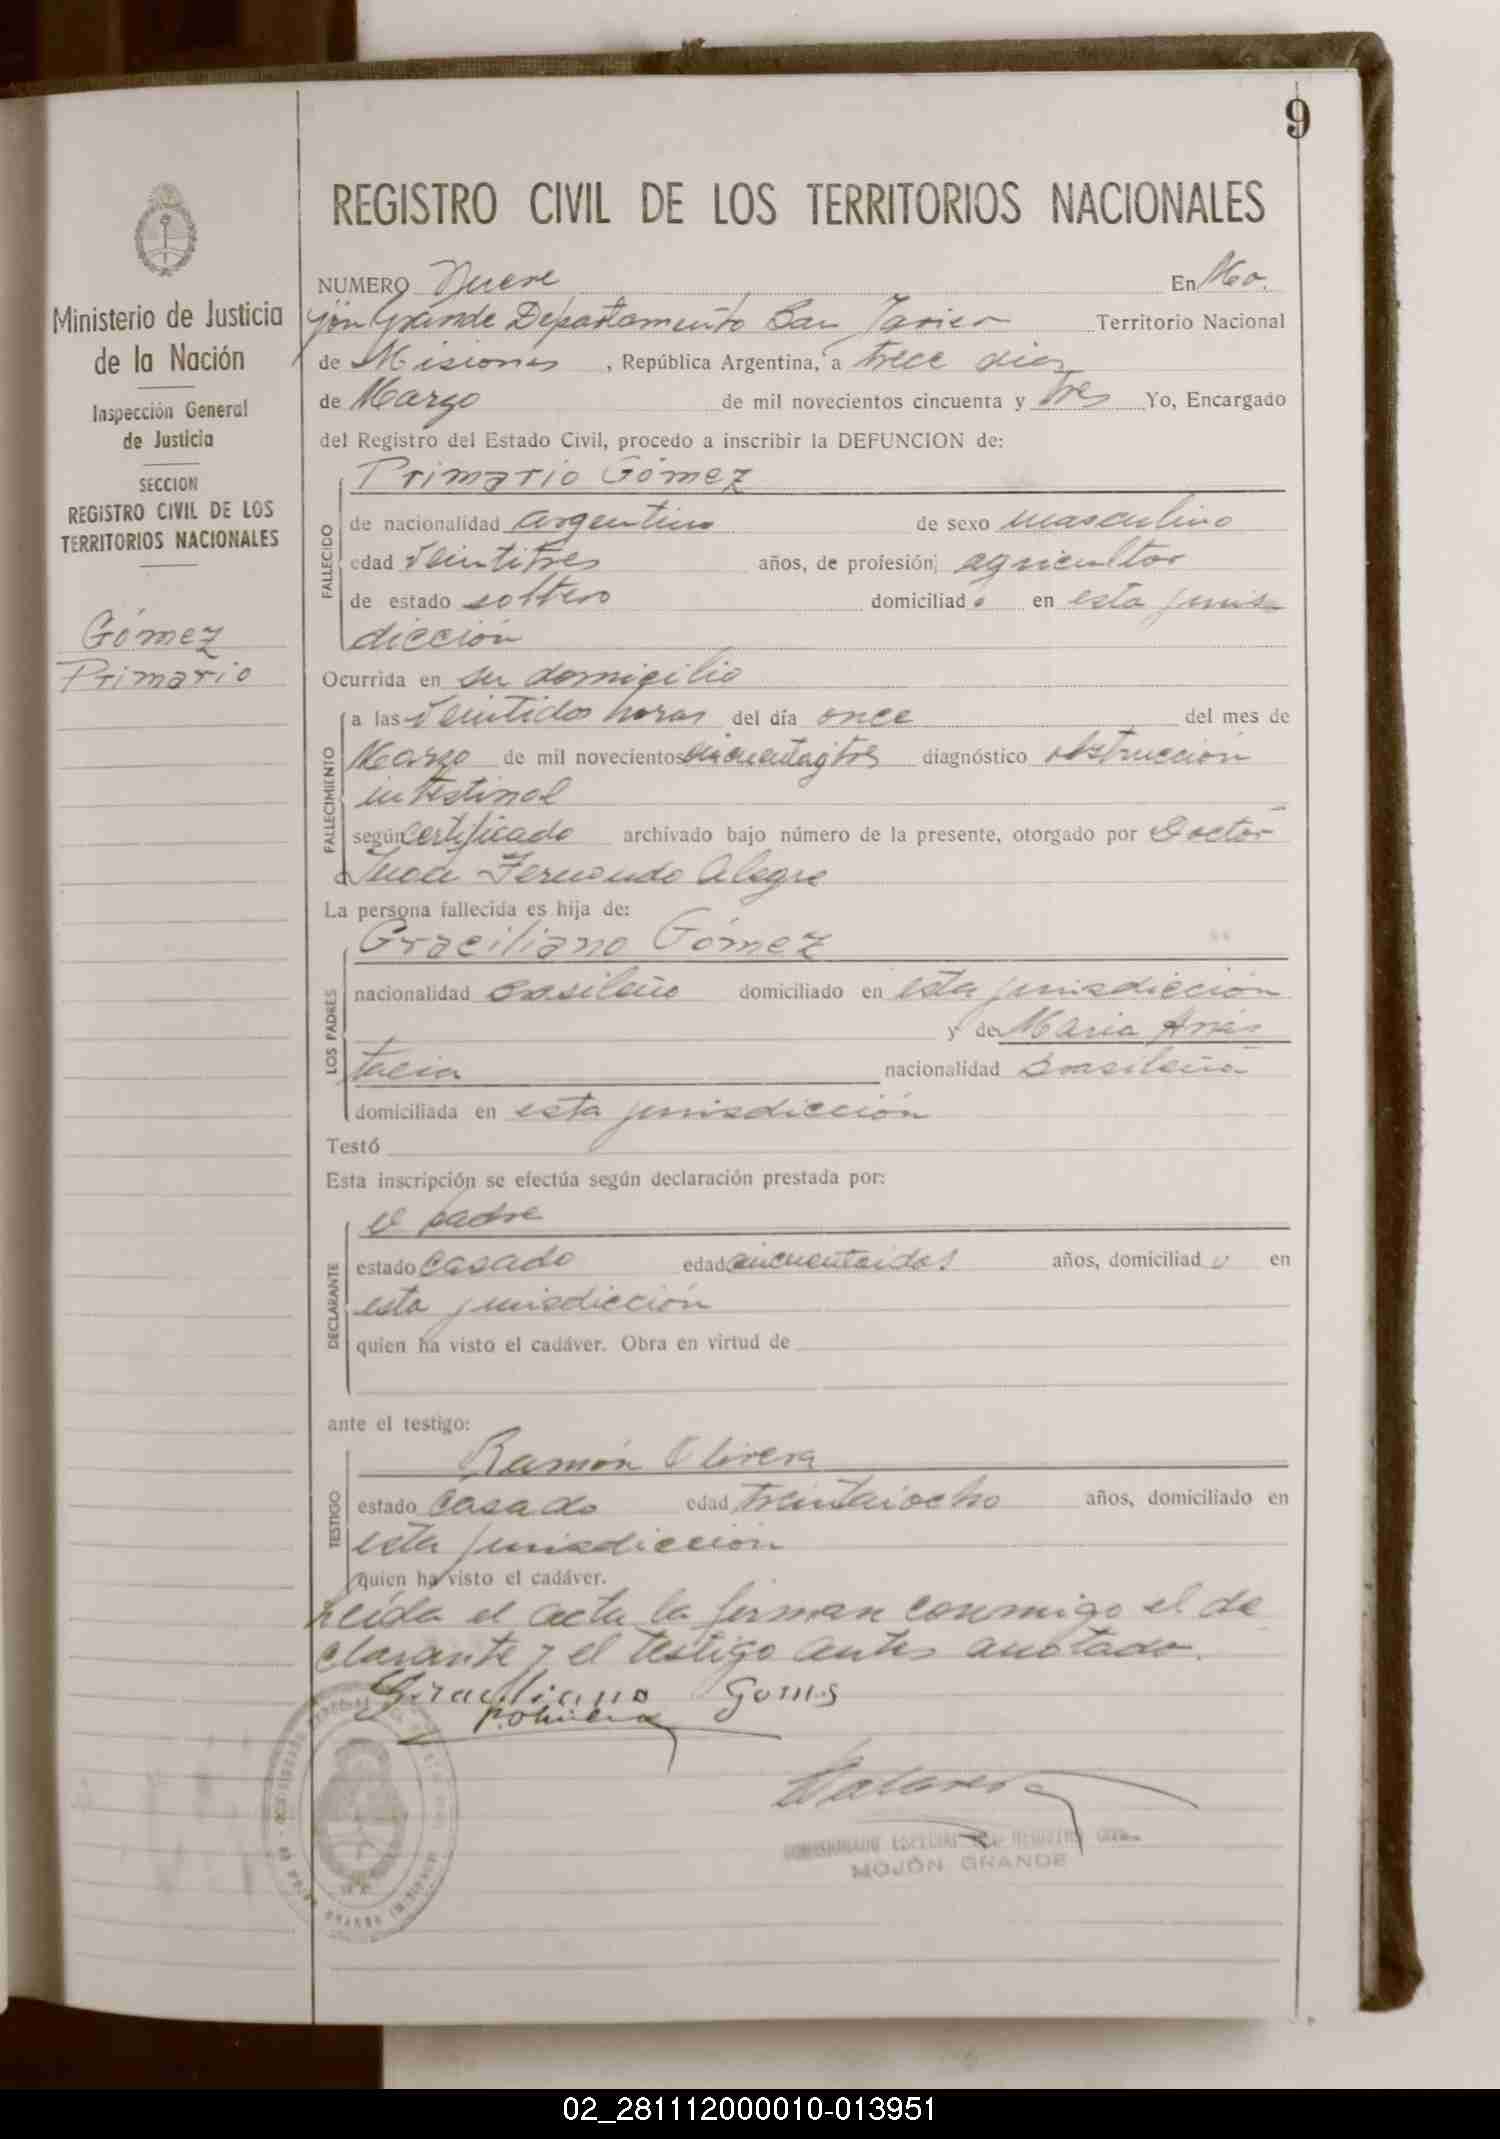 9
REGISTRO CIVIL DE LOS TERRITORIOS NACIONALES
Ministerio de Justicia
de la Nación
Inspección General
de Justicia
SECCION
REGISTRO CIVIL DE LOS
TERRITORIOS NACIONALES
Gómez
Primario
NUMERO Nueve En Mo.
jón Grande Departamento San Javier Territorio Nacional
de Misiones , República Argentina, a trece dias
de Marzo de mil novecientos cincuenta y tres Yo, Encargado
del Registro del Estado Civil, procedo a inscribir la DEFUNCION de:
FALLECIDO
Primario Gómez
de nacionalidad argentino de sexo masculino
edad veintitres años, de profesión; agricultor
de estado soltero domiciliad o en esta juris
dicción
Ocurrida en su domicilio
FALLECIMIENTO
a las veintidos horas del día once del mes de
Marzo de mil novecientos cincuentaytres diagnóstico obstrucción
intestinal
según certificado archivado bajo número de la presente, otorgado por Doctor
Juan Fernando Alegre
La persona fallecida es hija de:
LOS PADRES
Graciliano Gómez
nacionalidad brasileño domiciliado en esta jurisdicción
y de Maria Anas
tacia nacionalidad brasileña
domiciliada en esta jurisdicción
Testó
Esta inscripción se efectúa según declaración prestada por:
DECLARANTE
el padre
estado casado edad cincuentaidos años, domiciliad o en
esta jurisdicción
quien ha visto el cadáver. Obra en virtud de
ante el testigo:
TESTIGO
Ramón Olivera
estado casado edad treintaiocho años, domiciliado en
esta jurisdicción
quien ha visto el cadáver.
Leída el acta la firman conmigo el de
clarante y el testigo antes anotado.
Graciliano Gomes
R. Olivera
COMISIONADO ESPECIAL DEL REGISTRO CIVIL
MOJÓN GRANDE
02_281112000010-013951